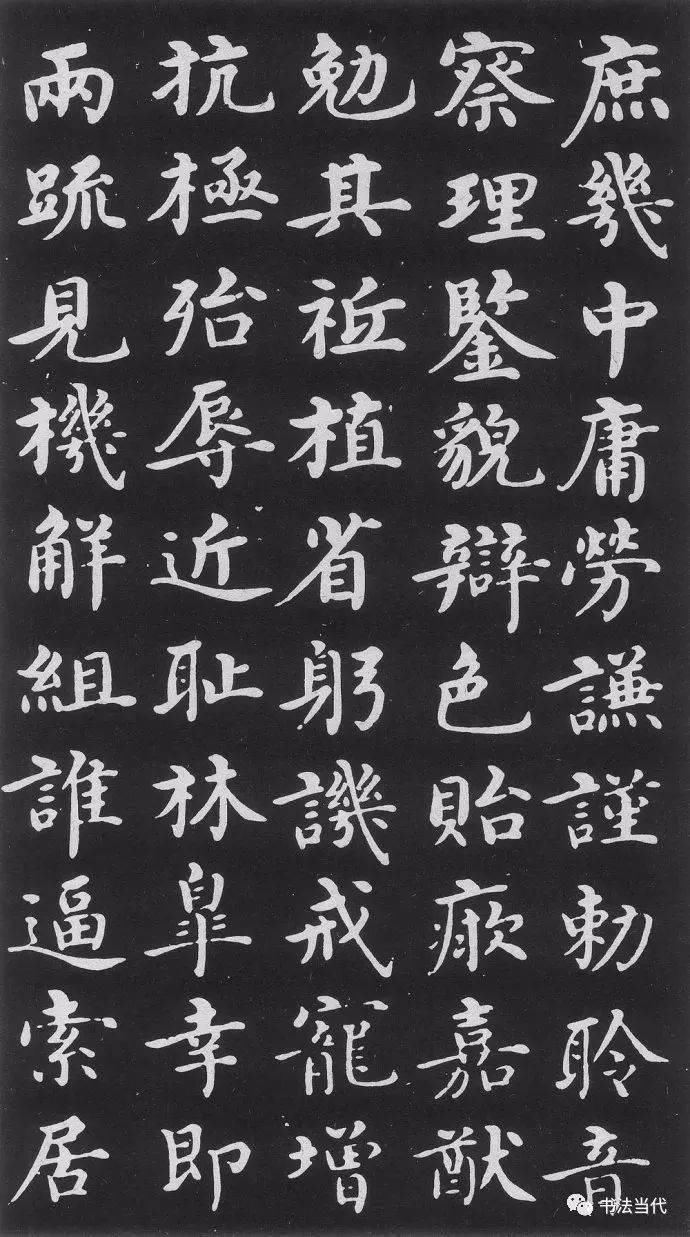 庶幾中庸勞謙謹勅聆音
察理鑒貌辯色貽厥嘉猷
勉其祗植省躬譏戒寵增
抗極殆辱近耻林皋幸即
兩疏見機解組誰逼索居
书法当代